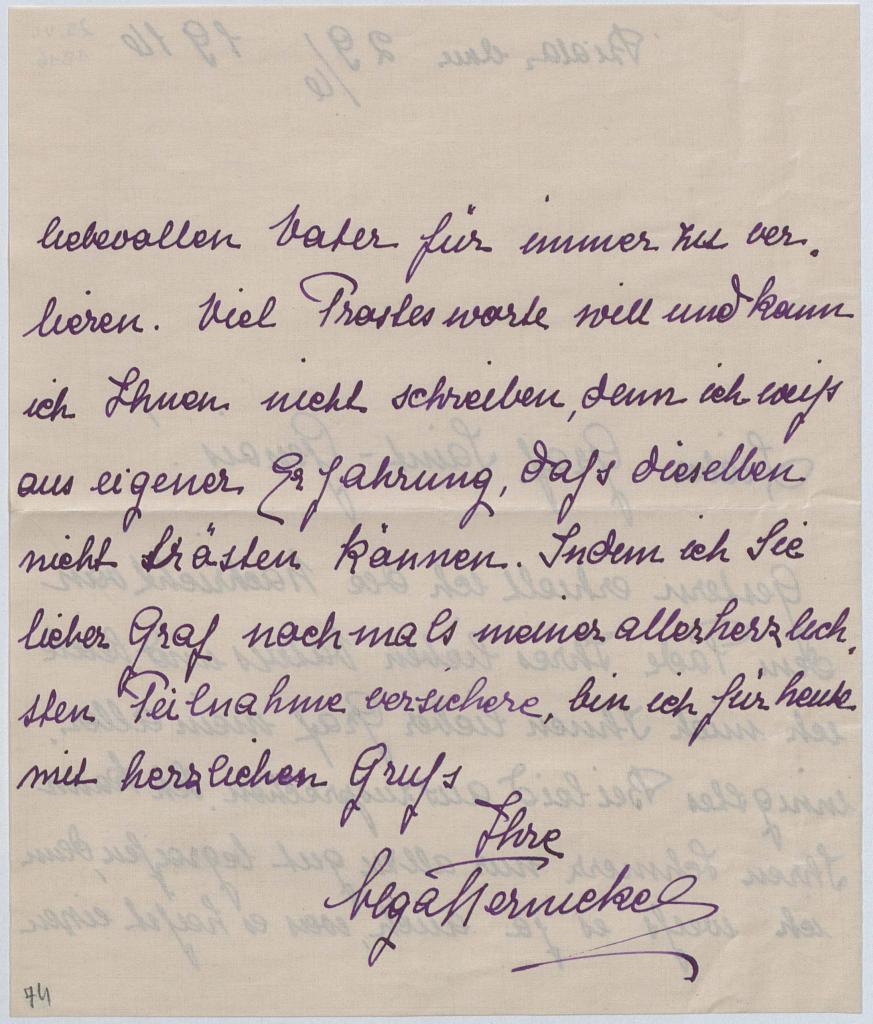 liebevollen Vater für immer zu ver.
lieren. Viel Trostesworte will und kann
ich Ihnen nicht schreiben, denn ich weiß
aus eigener Erfahrung, daß dieselben
nicht trösten können. Indem ich Sie
lieber Graf nochmals meiner allerherzlich.
sten Teilnahme versichere, bin ich für heute
mit herzlichen Gruß
Ihre
74